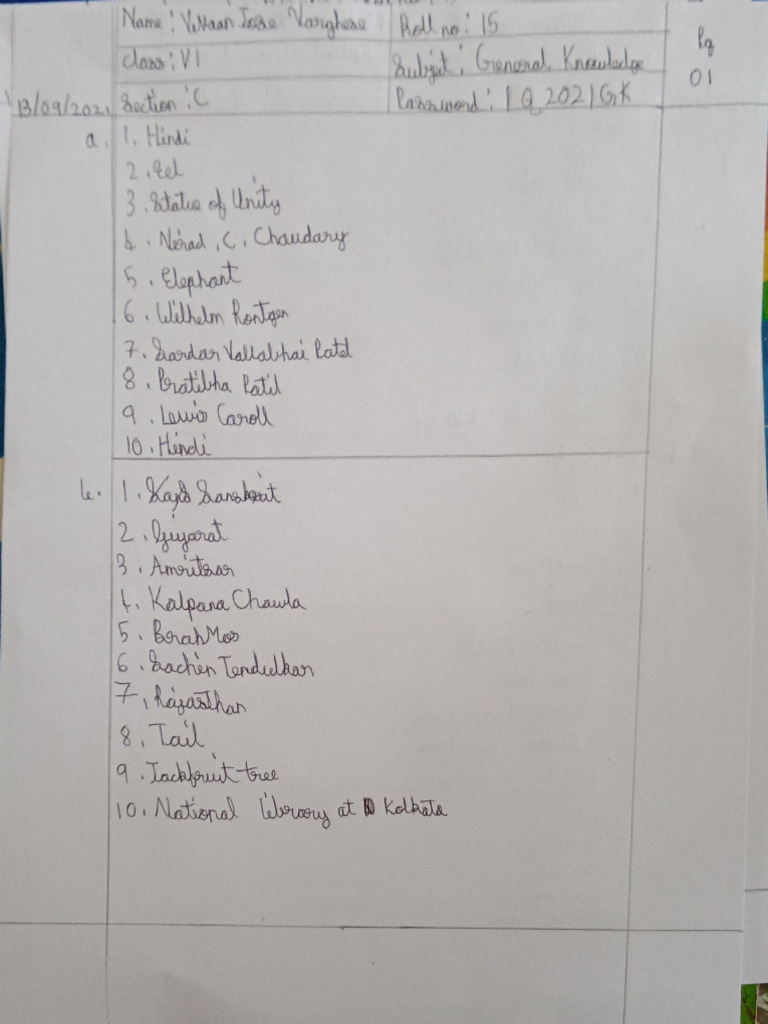 Name: Vihaan Jose Varghese
Roll no: 15
Pg
01
Class: VI
Subject: General Knowledge
13/09/2021
Section: C
Password: 1Q2021GK
a.
1. Hindi
2. Eel
3. Statue of Unity
4. Nirad, C, Chaudary
5. Elephant
6. Wilhelm Rontgen
7. Sardar Vallabhai Patel
8. Pratibha Patil
9. Lewis Caroll
10. Hindi
b.
1. Sanskrit
2. Gujarat
3. Amritsar
4. Kalpana Chawla
5. BrahMos
6. Sachin Tendulkar
7. Rajasthan
8. Tail
9. Jackfruit tree
10. National library at Kolkata